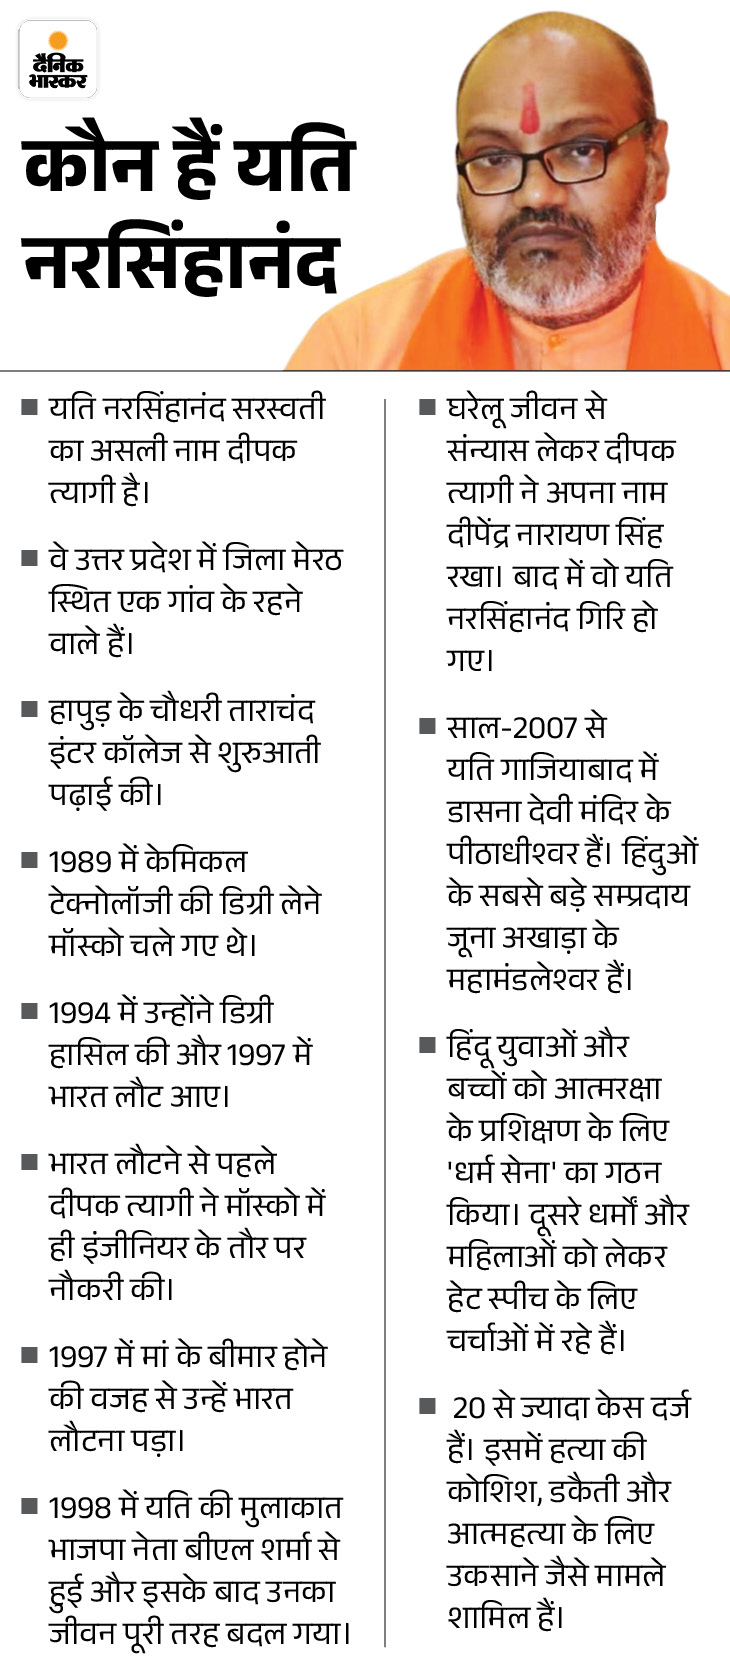 दैनिक
भास्कर
कौन हैं यति
नरसिंहानंद
यति नरसिंहानंद सरस्वती
का असली नाम दीपक
त्यागी है।
वे उत्तर प्रदेश में जिला मेरठ
स्थित एक गांव के रहने
वाले हैं।
हापुड़ के चौधरी ताराचंद
इंटर कॉलेज से शुरुआती
पढ़ाई की।
1989 में केमिकल
टेक्नोलॉजी की डिग्री लेने
मॉस्को चले गए थे।
1994 में उन्होंने डिग्री
हासिल की और 1997 में
भारत लौट आए।
भारत लौटने से पहले
दीपक त्यागी ने मॉस्को में
ही इंजीनियर के तौर पर
नौकरी की।
1997 में मां के बीमार होने
की वजह से उन्हें भारत
लौटना पड़ा।
1998 में यति की मुलाकात
भाजपा नेता बीएल शर्मा से
हुई और इसके बाद उनका
जीवन पूरी तरह बदल गया।
घरेलू जीवन से
संन्यास लेकर दीपक
त्यागी ने अपना नाम
दीपेंद्र नारायण सिंह
रखा। बाद में वो यति
नरसिंहानंद गिरि हो
गए।
साल-2007 से
यति गाजियाबाद में
डासना देवी मंदिर के
पीठाधीश्वर हैं। हिंदुओं
के सबसे बड़े सम्प्रदाय
जूना अखाड़ा के
महामंडलेश्वर हैं।
हिंदू युवाओं और
बच्चों को आत्मरक्षा
के प्रशिक्षण के लिए
'धर्म सेना' का गठन
किया। दूसरे धर्मों और
महिलाओं को लेकर
हेट स्पीच के लिए
चर्चाओं में रहे हैं।
20 से ज्यादा केस दर्ज
हैं। इसमें हत्या की
कोशिश, डकैती और
आत्महत्या के लिए
उकसाने जैसे मामले
शामिल हैं।